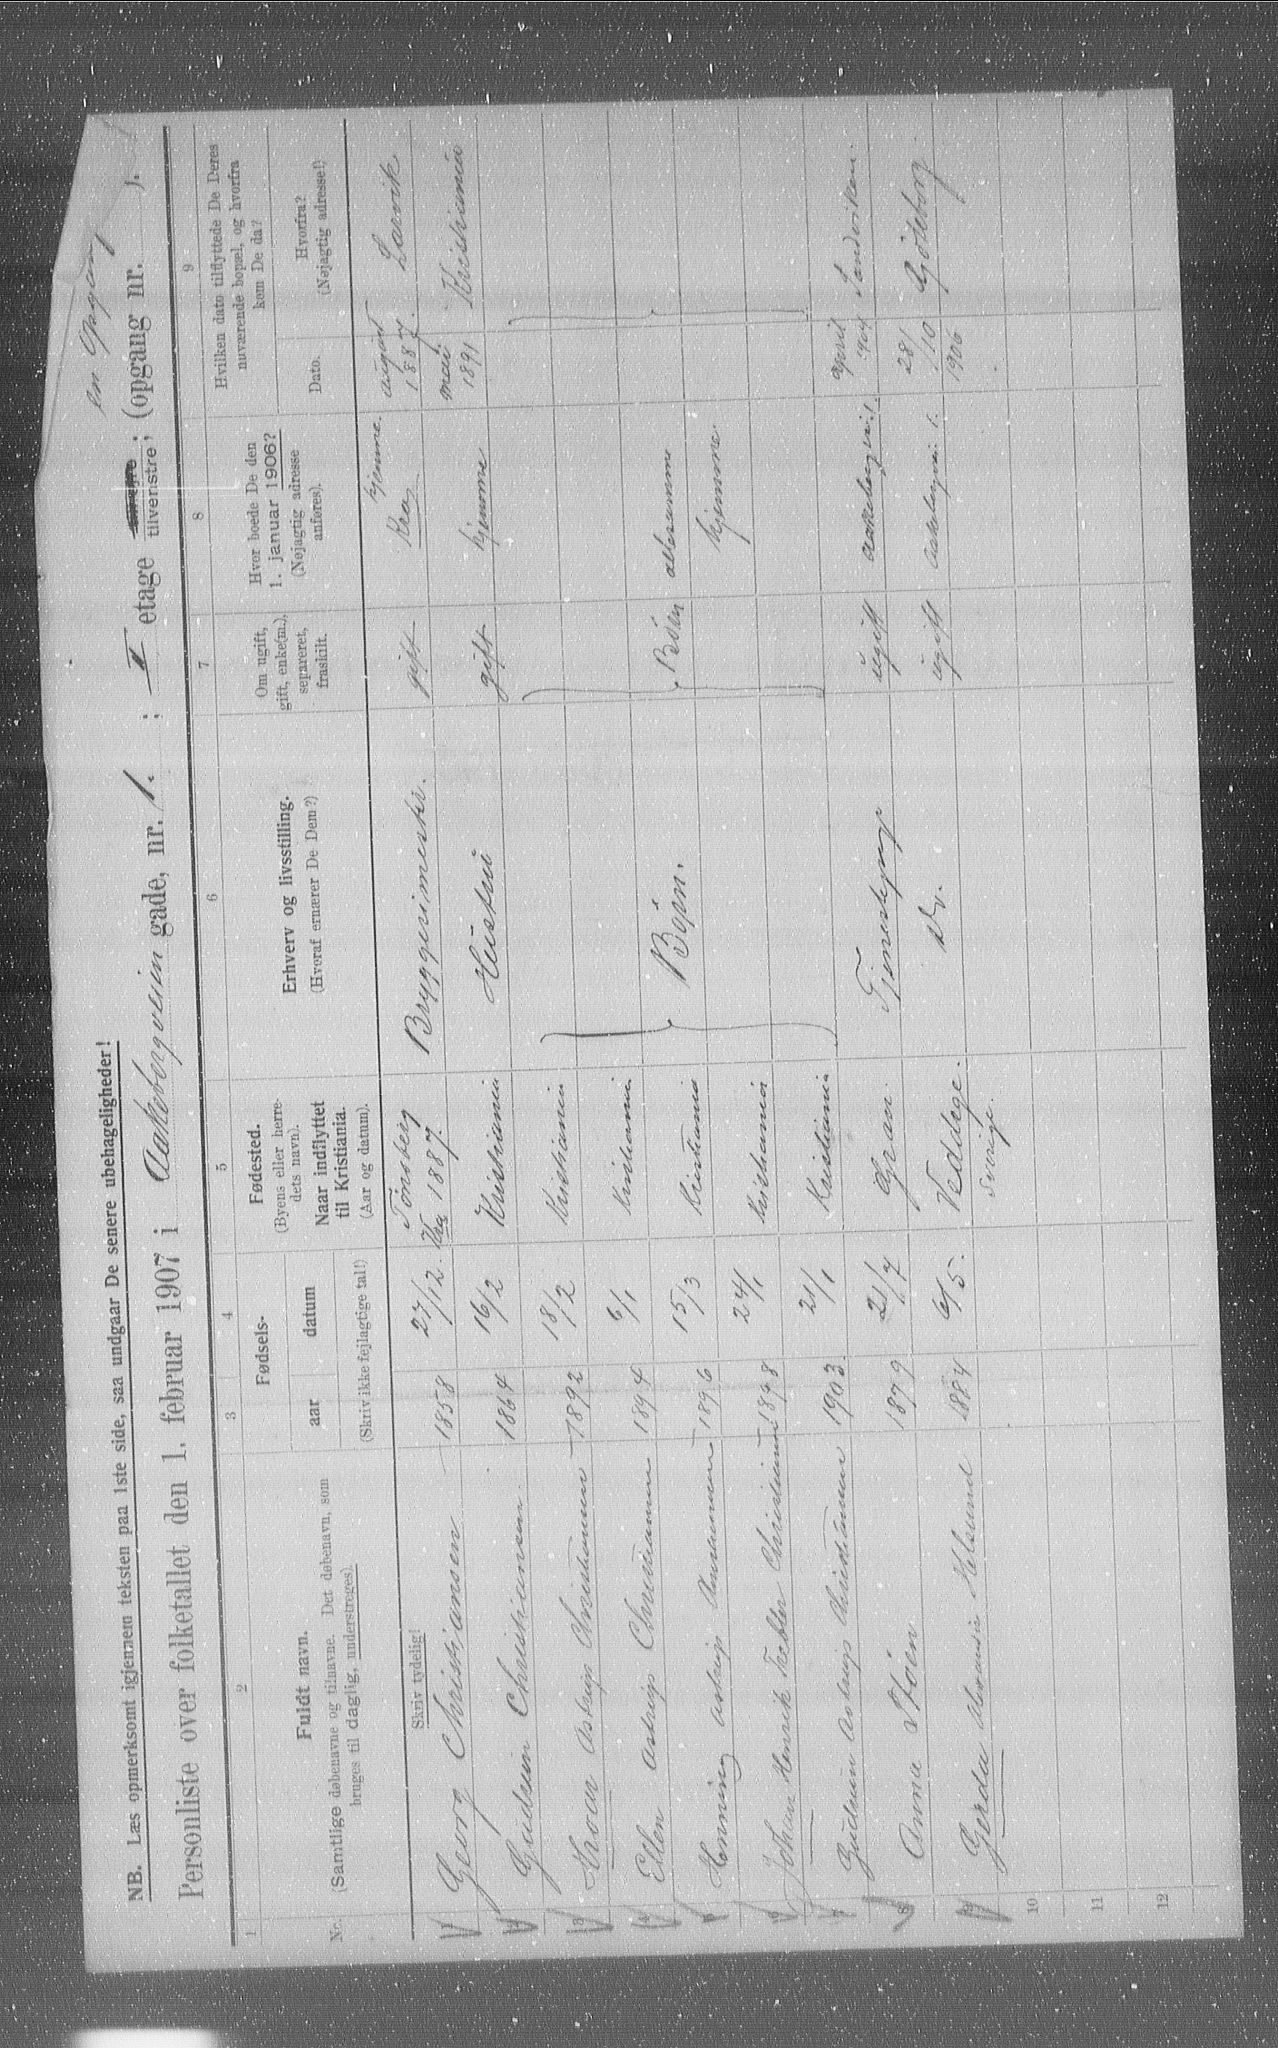 NB. Læs opmerksomt igjennem teksten paa 1ste side, saa undgaar De senere ubehageligheder!
en Opgang
Personliste over folketallet den 1. februar 1907 i Aakebergveien gade, nr. 1. ; II etage tilvenstre; (opgang nr. ).
1 2 3 4 5 6 7 8 9
Nr.
Fuldt navn.
(Samtlige døbenavne og tilnavne. Det døbenavn, som
bruges til daglig, understreges).
Fødsels-
aar datum
(Skriv ikke fejlagtige tal!)
Fødested.
(Byens eller herre-
dets navn).
Naar indflyttet
til Kristiania.
(Aar og datum).
Erhverv og livsstilling.
(Hvoraf ernærer De Dem?)
Om ugift,
gift, enke(m.),
separeret,
fraskilt.
Hvor boede De den
1. januar 1906?
(Nøjagtig adresse
anføres).
Hvilken dato tilflyttede De Deres
nuværende bopæl, og hvorfra
kom De da?
Dato.
Hvorfra?
(Nøjagtig adresse!)
Skriv tydelig!
Georg Christiansen 1858 27/12. Tönsberg Kra 1887. Bryggerimester. gift Kra hjemme. august 1887. Larvik
Gudrun Christiansen. 1864 16/2 Kristiania Hustru gift hjemme mai 1891 Kristiania
Astrup Christiansen 1892 18/2 Kristiania
Ellen Astrup Christiansen 1894 6/1 Kristiania
Henning Astrup Christiansen 1896 15/3 Kristiania Börn. Börn allesamme hjemme.
Johan Henrik Christiansen 1898 24/1 Kristiania
Gudrun Astrup Christiansen 1903. 21/1 Kristiania
8 Anna Stöen 1879 21/7 Gran. Tjenestepige ugift Aakebergvei. 1. April 1904 Sandviken.
Gerda Helsund 1884 6/5. Veddege. Sverige. Do. ugift Aakebergvei. 1. 28/10 1906 Göteborg.
10
11
12